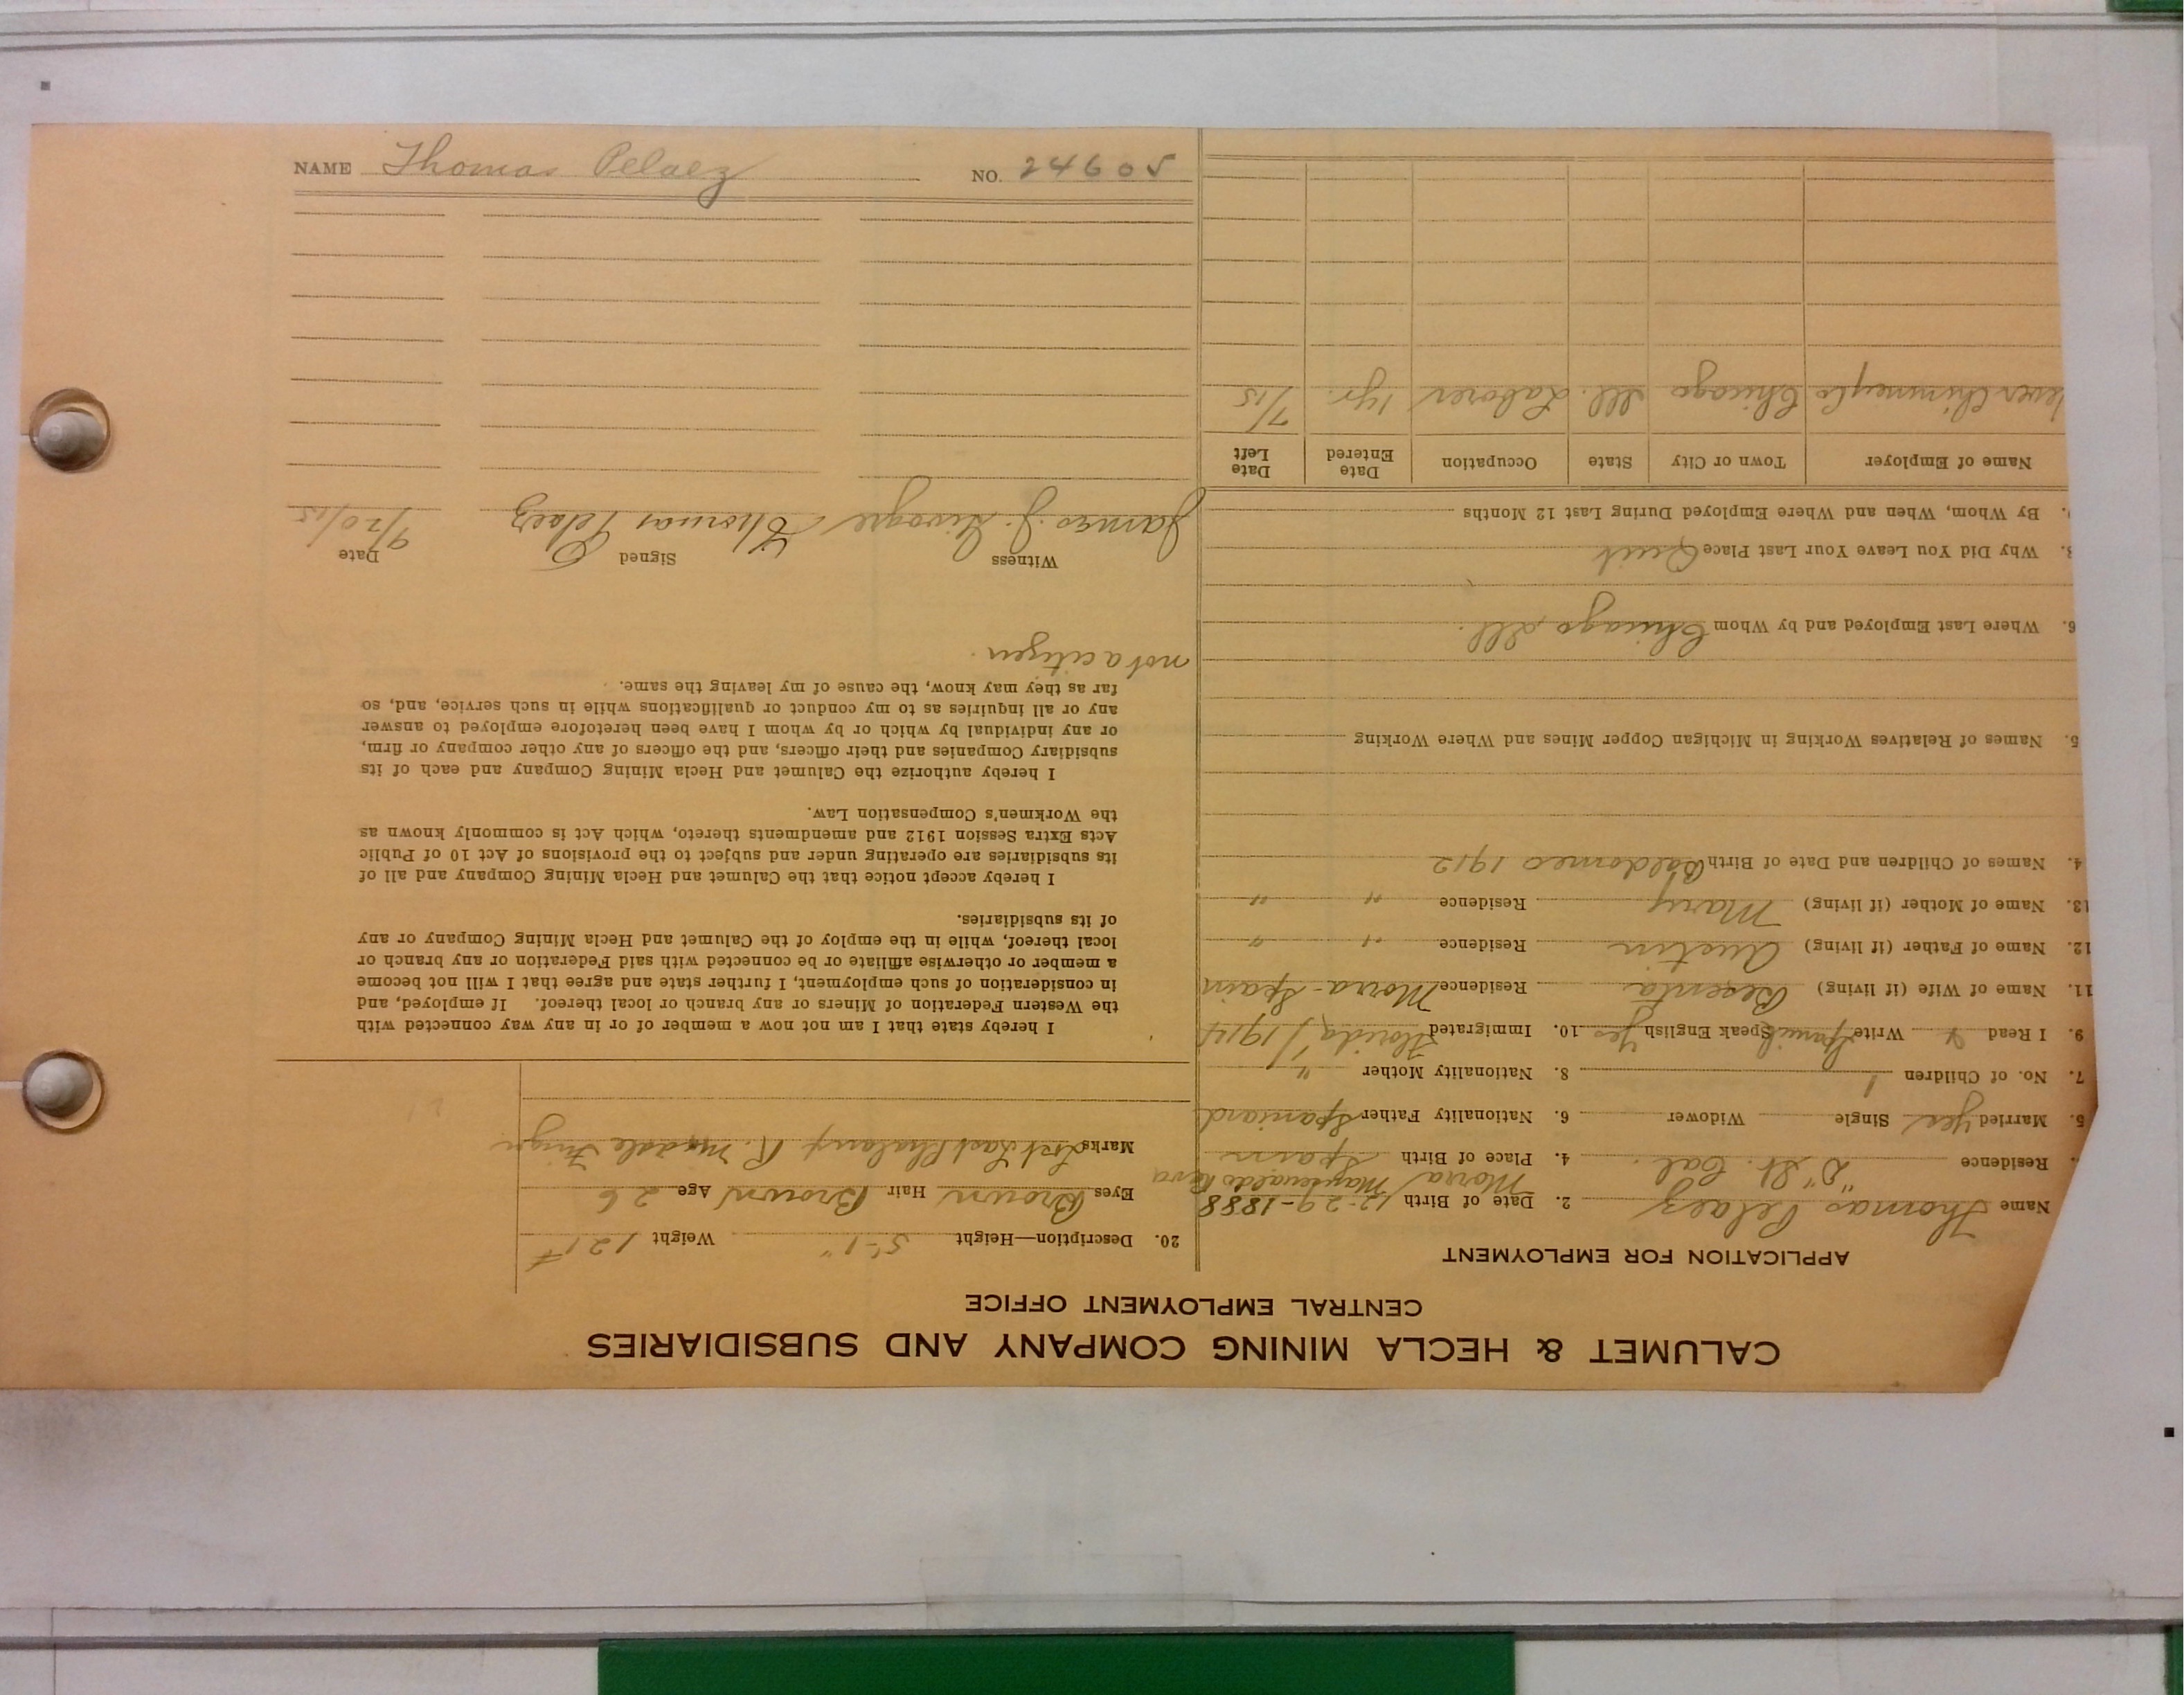 CALUMET & HECLA MINING COMPANY AND SUBSIDIARIES
CENTRAL EMPLOYMENT OFFICE
APPLICATION FOR EMPLOYMENT
Name Thomas Pelaez 2. Date of Birth 12-29-1888
Residence "D" St. Cal. 4. Place of Birth Spain
5. Married Yes Single Widower 6. Nationality Father Spaniard
7. No. of Children 1 8. Nationality Mother "
9. I Read & Write Spanish Speak English Yes 10. Immigrated Florida / 1914
11. Name of Wife (if living) Residence Morra-Spain
12. Name of Father (if living) Austin Residence " "
13. Name of Mother (if living) Mary Residence " "
4. Names of Children and Date of Birth Baldomeo 1912
5. Names of Relatives Working in Michigan Copper Mines and Where Working
6. Where Last Employed and by Whom Chicago, Ill.
8. Why Did You Leave Your Last Place Quit
By Whom, When and Where Employed During Last 12 Months
Name of Employer Town or City State Occupation Date Entered Date Left
Chimney Co Chicago Ill. Laborer 1 yr. 7/15
20. Description—Height 5'-1" Weight 121#
Eyes Brown Hair Brown Age 26
Marks Lost Last Phalanx R. Middle Finger
I hereby state that I am not now a member of or in any way connected with
the Western Federation of Miners or any branch or local thereof. If employed, and
in consideration of such employment, I further state and agree that I will not become
a member or otherwise affiliate or be connected with said Federation or any branch or
local thereof, while in the employ of the Calumet and Hecla Mining Company or any
of its subsidiaries.
I hereby accept notice that the Calumet and Hecla Mining Company and all of
its subsidiaries are operating under and subject to the provisions of Act 10 of Public
Acts Extra Session 1912 and amendments thereto, which Act is commonly known as
the Workmen's Compensation Law.
I hereby authorize the Calumet and Hecla Mining Company and each of its
subsidiary Companies and their officers, and the officers of any other company or firm,
or any individual by which or by whom I have been heretofore employed to answer
any or all inquiries as to my conduct or qualifications while in such service, and, so
far as they may know, the cause of my leaving the same.
not a citizen.
Witness Signed Date
James J. Thomas Pelaez 9/20/15
NAME Thomas Pelaez NO. 24605